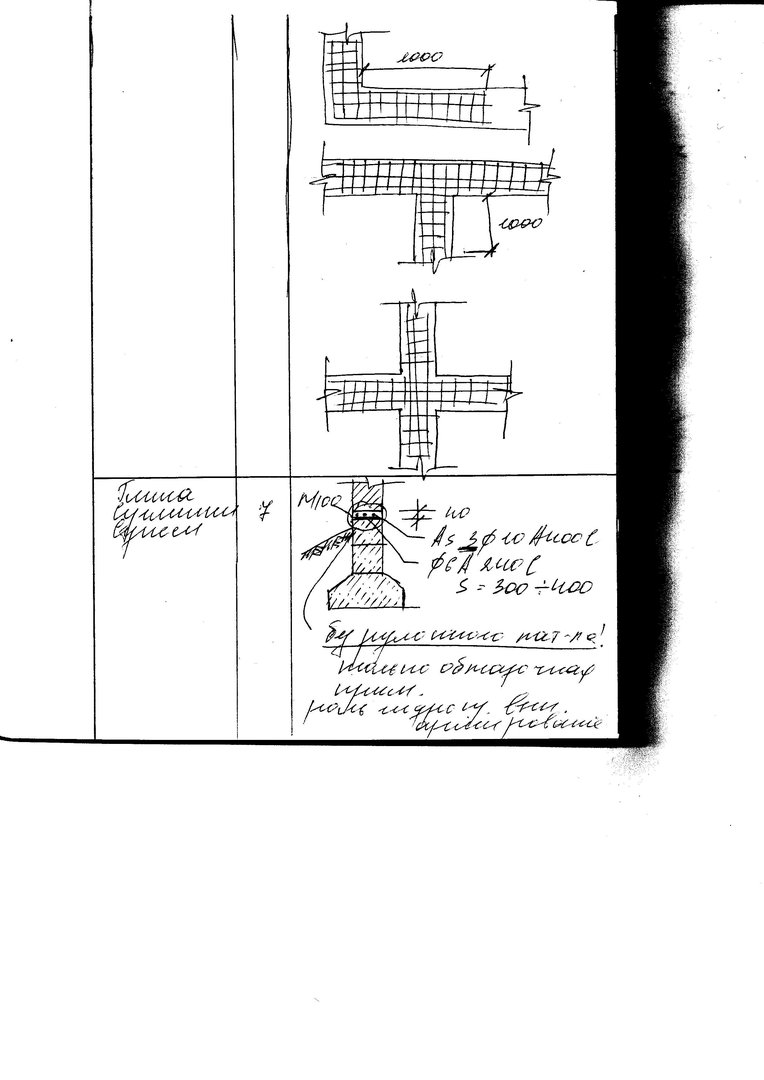 1000
1000
Глина
Суглинки
Супеси
7
М100
40
As 3φ10 A400С
φ6A240С
S = 300÷400
без рулонного мат-ла!
только обмазочная
роль гидроиз. вып.
армирование